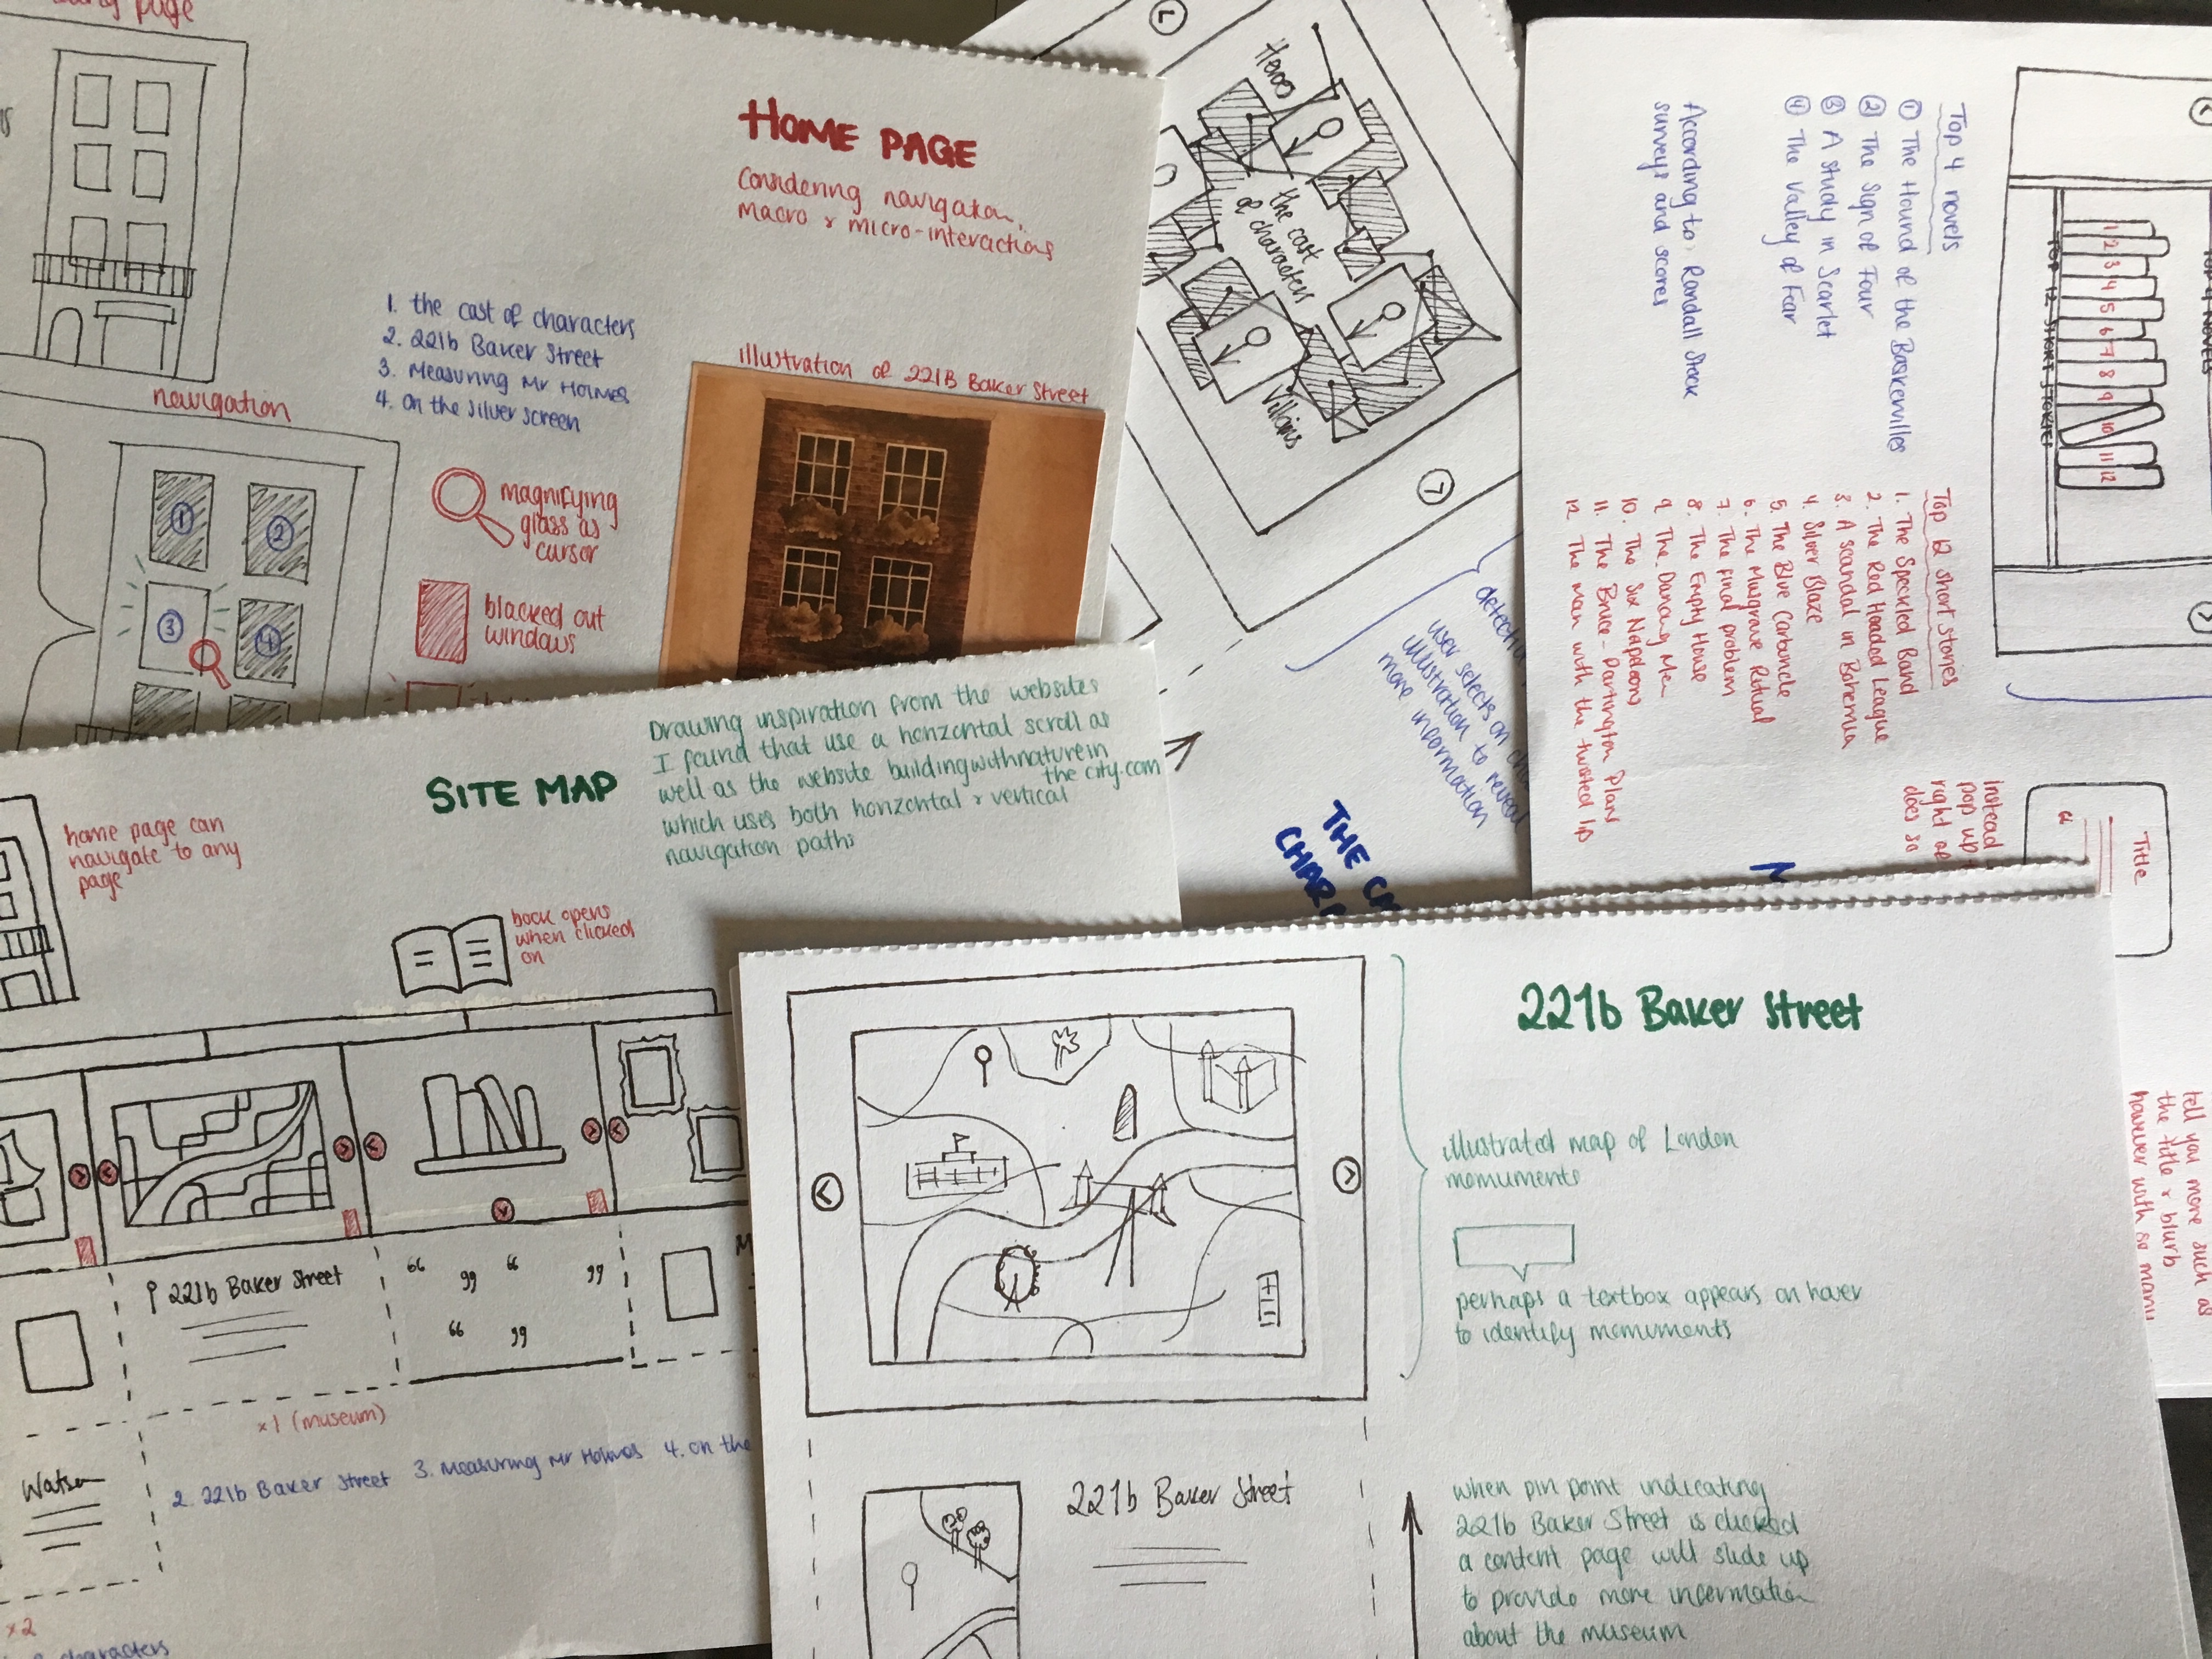 page
HOME PAGE
Considering navigation,
macro & micro-interactions
1. the cast of characters
2. 221b Baker Street
3. Measuring Mr Holmes
4. on the silver screen
illustration of 221B Baker Street
navigation
1
2
3
4
magnifying
glass as
cursor
blacked out
windows
Heroes
the cast
of characters
Villains
user selects on
illustration to reveal
more information
THE
CHAR
Top 4 novels
① The Hound of the Baskervilles
② The Sign of Four
③ A Study in Scarlet
④ The Valley of Fear
According to Randall Stock
surveys and scores
TOP 12 SHORT STORIES
1 2 3 4 5 6 7 8 9 10 11 12
Top 12 short stories
1. The Speckled Band
2. The Red Headed League
3. A scandal in Bohemia
4. Silver Blaze
5. The Blue Carbuncle
6. The Musgrave Ritual
7. The final problem
8. The Empty House
9. The Dancing Men
10. The Six Napoleons
11. The Bruce-Partington Plans
12. The man with the twisted lip
instead
pop up
right
does so
Title
“
tell you more such as
the title & blurb
however with so many
SITE MAP
Drawing inspiration from the websites
I found that use a horizontal scroll as
well as the website buildingwithnaturein
the city.com
which uses both horizontal & vertical
navigation paths
home page can
navigate to any
page
book opens
when clicked
on
221b Baker Street
“ ” “ ”
“ ”
M
x1 (museum)
2. 221b Baker Street 3. Measuring Mr Holmes 4. on the
Watson
x2
characters
221b Baker Street
illustrated map of London
monuments
perhaps a textbox appears on hover
to identify monuments
221b Baker Street
when pin point indicating
221b Baker Street is clicked
a content page will slide up
to provide more information
about the museum